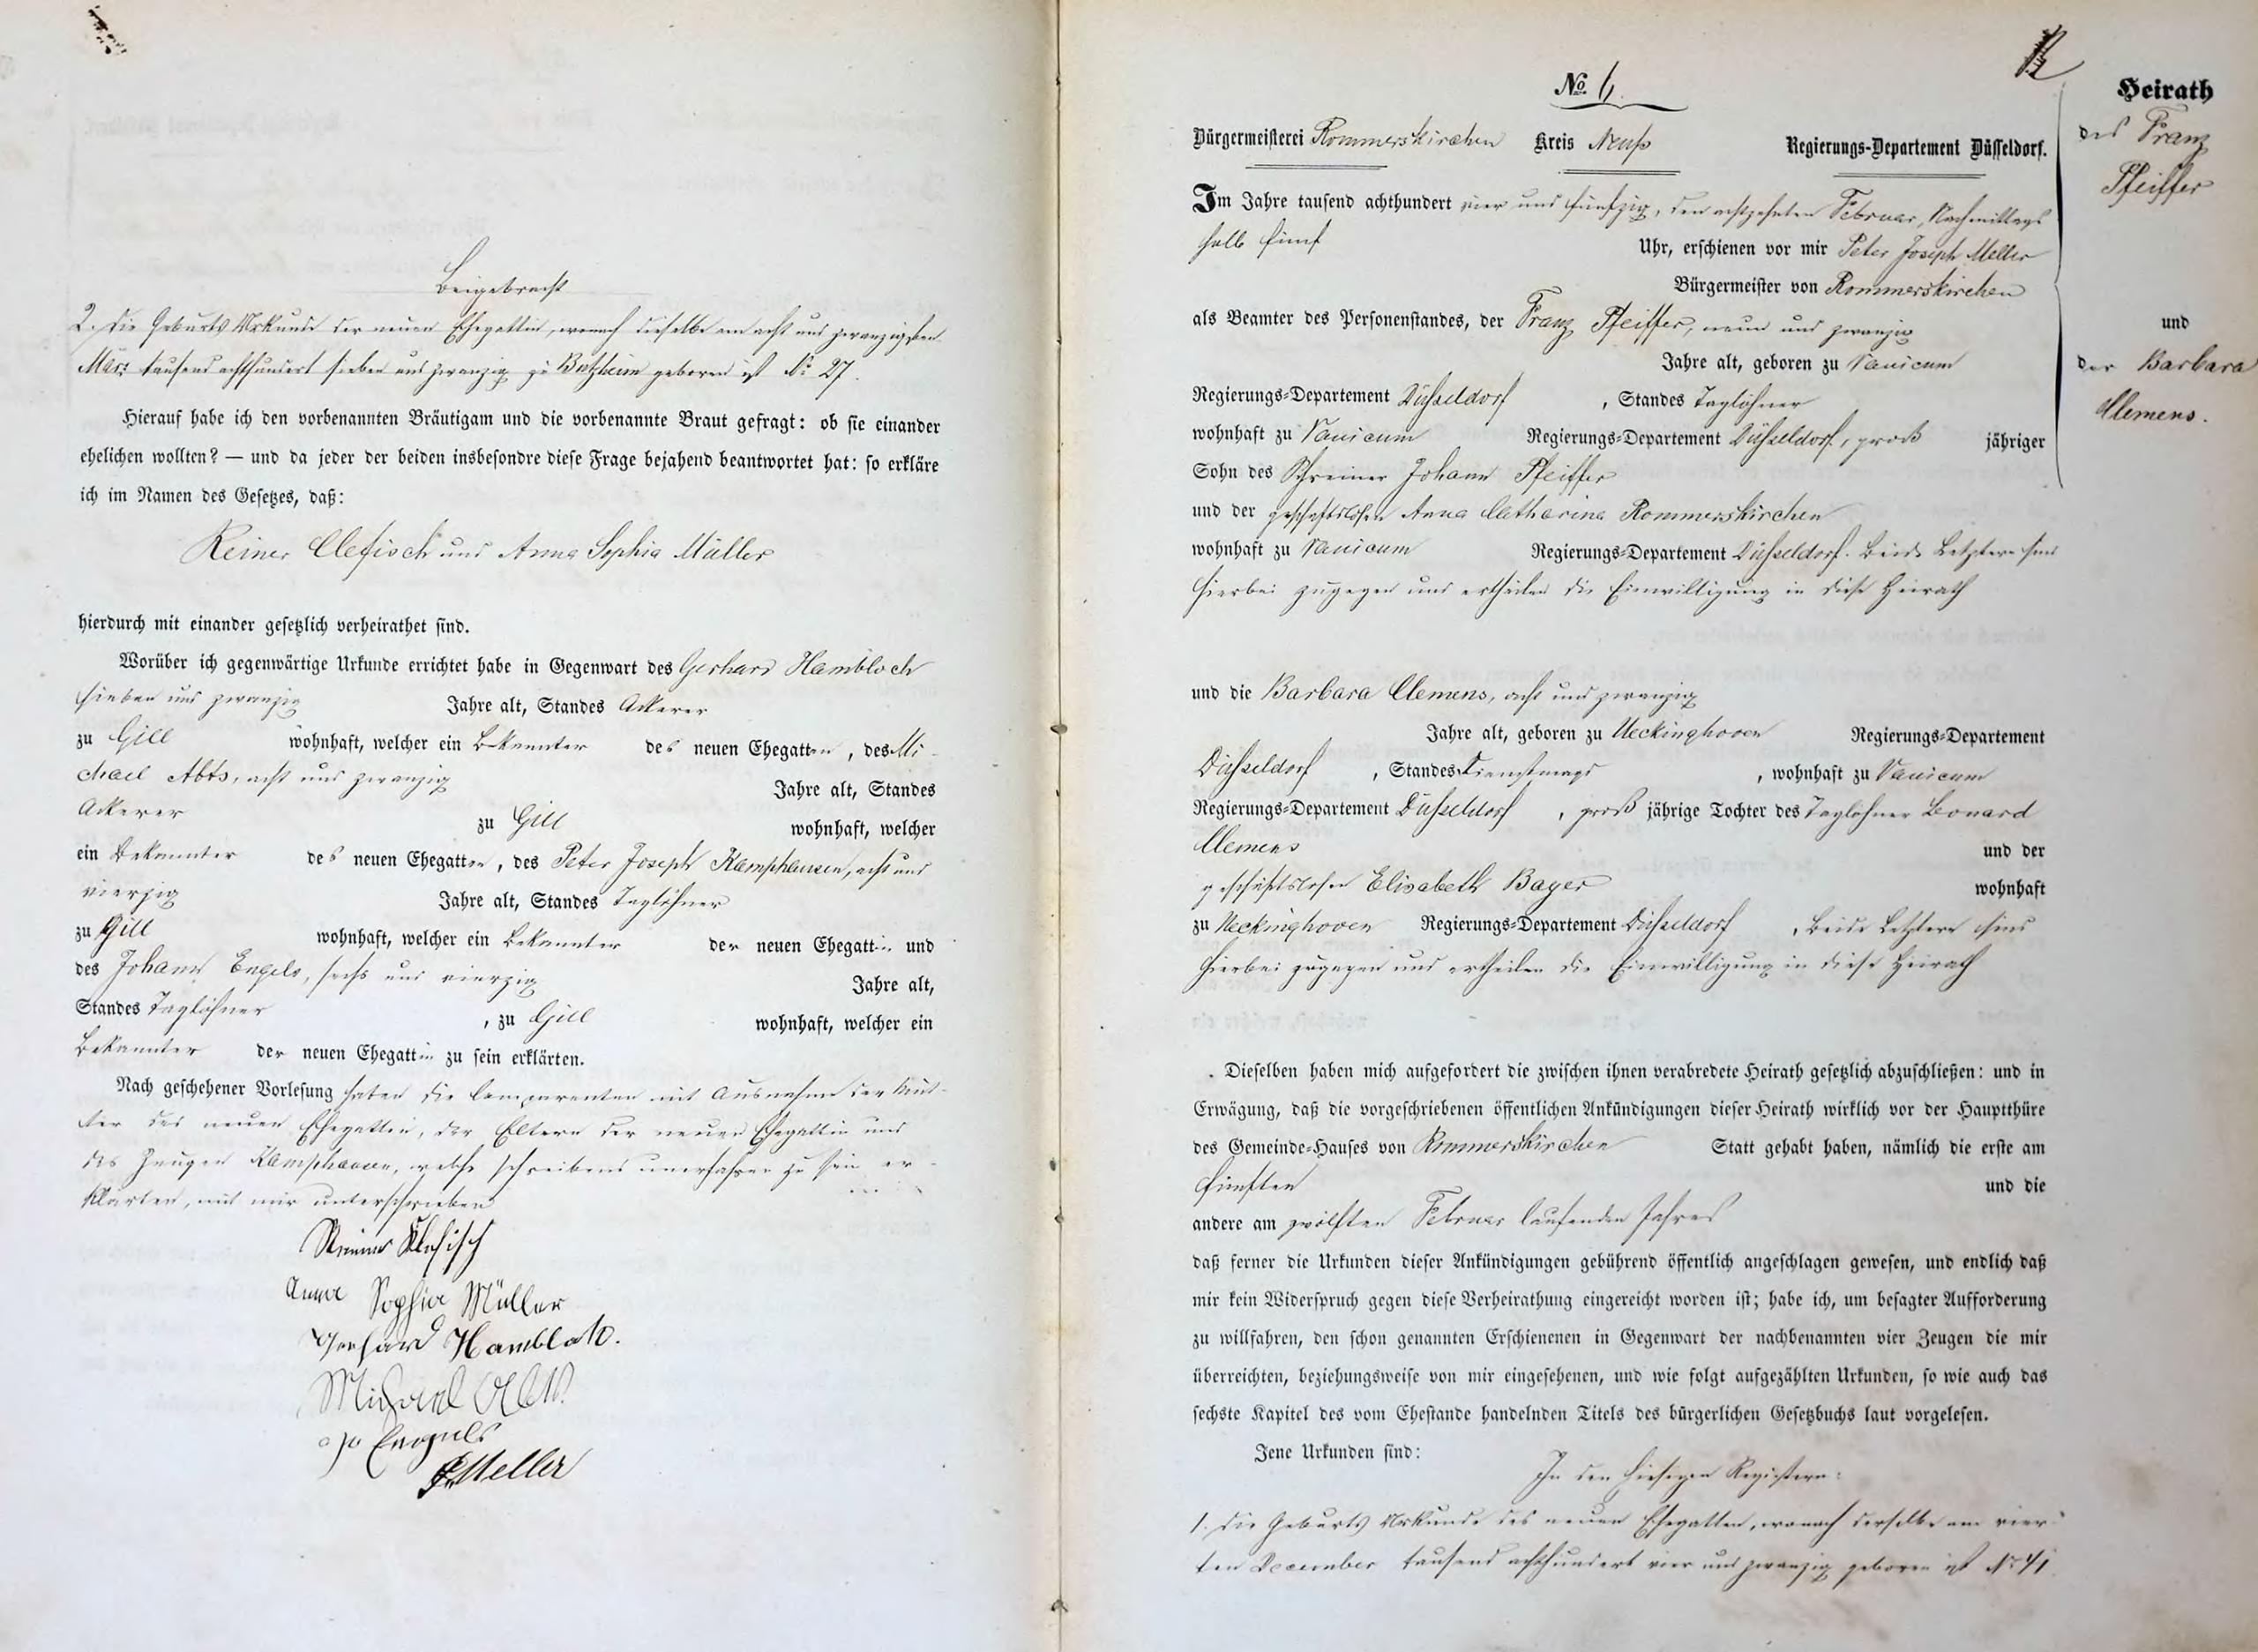 Beigebracht
2. die Geburts Urkunde der neuen Ehegattin, wonach dieselbe am acht und zwanzigsten
März tausend achthundert sieben und zwanzig zu Butzheim geboren ist No 27.
Hierauf habe ich den vorbenannten Bräutigam und die vorbenannte Braut gefragt: ob sie einander
ehelichen wollten? — und da jeder der beiden insbesondre diese Frage bejahend beantwortet hat: so erkläre
ich im Namen des Gesetzes, daß:
Reiner Clefisch und Anna Sophia Müller
hierdurch mit einander gesetzlich verheirathet sind.
Worüber ich gegenwärtige Urkunde errichtet habe in Gegenwart des Gerhard Hambloch
sieben und zwanzig Jahre alt, Standes Ackerer
zu Gill wohnhaft, welcher ein Bekannter des neuen Ehegatten, des Mi-
chael Abts, acht und zwanzig Jahre alt, Standes
Ackerer zu Gill wohnhaft, welcher
ein Bekannter des neuen Ehegatten, des Peter Joseph Kamphausen, acht und
vierzig Jahre alt, Standes Taglöhner
zu Gill wohnhaft, welcher ein Bekannter der neuen Ehegattin und
des Johann Engels, sechs und vierzig Jahre alt,
Standes Taglöhner, zu Gill wohnhaft, welcher ein
Bekannter der neuen Ehegattin zu sein erklärten.
Nach geschehener Vorlesung haben die Comparenten mit Ausnahme der Mut-
ter des neuen Ehegatten, der Eltern der neuen Ehegattin und
des Zeugen Kamphausen, welche schreibens unerfahren zu sein er-
klärten, mit mir unterschrieben
Reiner Klefisch
Anna Sophia Müller
Gerhard Hambloch.
Michael Abts
Engels
Meller
No. 6.
Bürgermeisterei Rommerskirchen Kreis Neuß Regierungs-Departement Düsseldorf.
Im Jahre tausend achthundert vier und fünfzig, den achtzehnten Februar, Nachmittags
halb fünf Uhr, erschienen vor mir Peter Joseph Meller
Bürgermeister von Rommerskirchen
als Beamter des Personenstandes, der Franz Pfeiffer, neun und zwanzig
Jahre alt, geboren zu Vanicum
Regierungs-Departement Düsseldorf, Standes Taglöhner
wohnhaft zu Vanicum Regierungs-Departement Düsseldorf, groß jähriger
Sohn des Schreiner Johann Pfeiffer
und der geschäftslosen Anna Catharina Rommerskirchen
wohnhaft zu Vanicum Regierungs-Departement Düsseldorf. Beide Letztere sind
hierbei zugegen und ertheilen die Einwilligung in diese Heirath
und die Barbara Clemens, acht und zwanzig
Jahre alt, geboren zu Ueckinghoven Regierungs-Departement
Düsseldorf, Standes Dienstmagd, wohnhaft zu Vanicum
Regierungs-Departement Düsseldorf, groß jährige Tochter des Taglöhner Leonard
Clemens und der
geschäftslosen Elisabeth Bayer wohnhaft
zu Ueckinghoven Regierungs-Departement Düsseldorf, Beide Letztere sind
hierbei zugegen und ertheilen die Einwilligung in diese Heirath
. Dieselben haben mich aufgefordert die zwischen ihnen verabredete Heirath gesetzlich abzuschließen: und in
Erwägung, daß die vorgeschriebenen öffentlichen Ankündigungen dieser Heirath wirklich vor der Hauptthüre
des Gemeinde-Hauses von Rommerskirchen Statt gehabt haben, nämlich die erste am
fünften und die
andere am zwölften Februar laufenden Jahres
daß ferner die Urkunden dieser Ankündigungen gebührend öffentlich angeschlagen gewesen, und endlich daß
mir kein Widerspruch gegen diese Verheirathung eingereicht worden ist; habe ich, um besagter Aufforderung
zu willfahren, den schon genannten Erschienenen in Gegenwart der nachbenannten vier Zeugen die mir
überreichten, beziehungsweise von mir eingesehenen, und wie folgt aufgezählten Urkunden, so wie auch das
sechste Kapitel des vom Ehestande handelnden Titels des bürgerlichen Gesetzbuchs laut vorgelesen.
Jene Urkunden sind:
In den hiesigen Registern:
1. die Geburts Urkunde des neuen Ehegatten, wonach derselbe am vier-
ten December tausend achthundert vier und zwanzig geboren ist No 41.
Heirath
des Franz
Pfeiffer
und
der Barbara
Clemens.